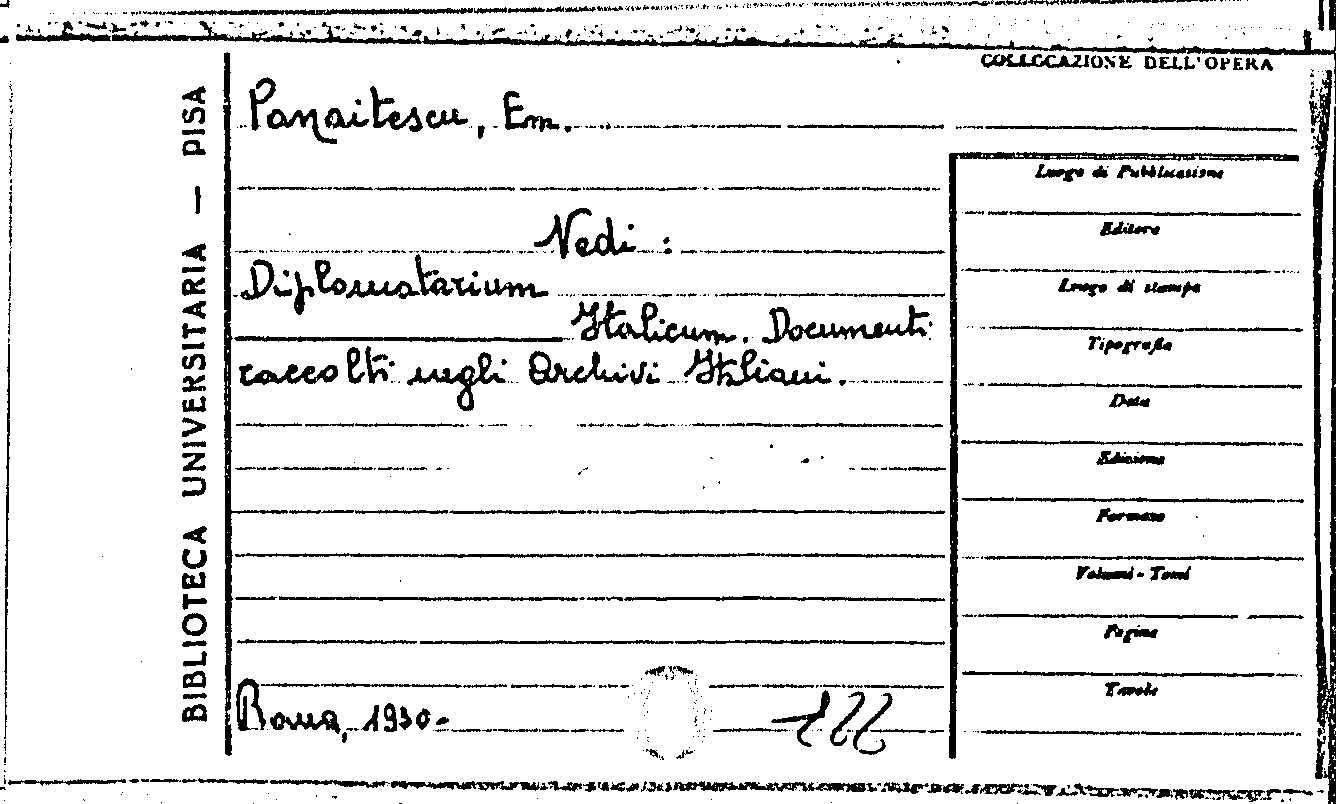 BIBLIOTECA UNIVERSITARIA — PISA
COLLOCAZIONE DELL'OPERA
Panaitescu, Em.
Vedi :
Diplomatarium
Italicum. Documenti
raccolti negli Archivi Italiani.
Roma, 1930-
Luogo di Pubblicazione
Editore
Luogo di stampa
Tipografia
Data
Edizione
Formato
Volumi - Tomi
Pagine
Tavole